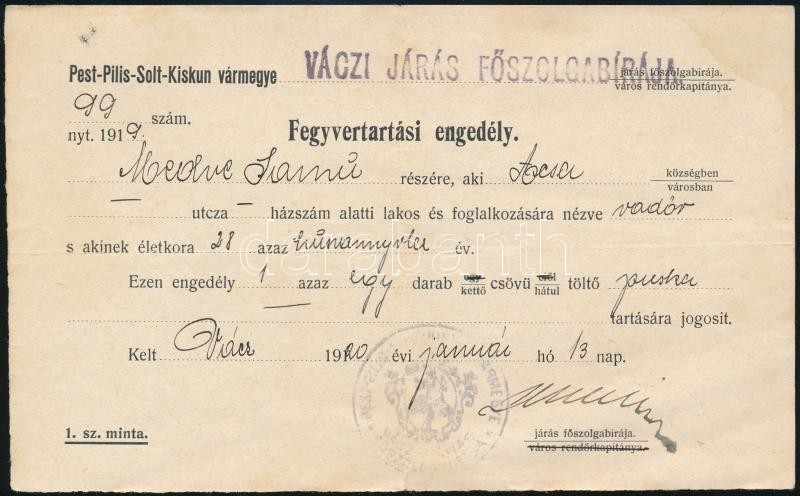 Pest-Pilis-Solt-Kiskun vármegye VÁCZI JÁRÁS FŐSZOLGABÍRÁJA. járás főszolgabirája.
város rendőrkapitánya.
99 szám.
nyt. 1919.
Fegyvertartási engedély.
Medve Samu részére, aki Acsa községben
városban
— utcza — házszám alatti lakos és foglalkozására nézve vadőr
s akinek életkora 28 azaz év.
Ezen engedély 1 azaz egy darab egy kettő csövü elől hátul töltő puska
tartására jogosit.
Kelt Vácz 1920 évi január hó 13 nap.
1. sz. minta.
járás főszolgabirája.
város rendőrkapitánya.
darabanth